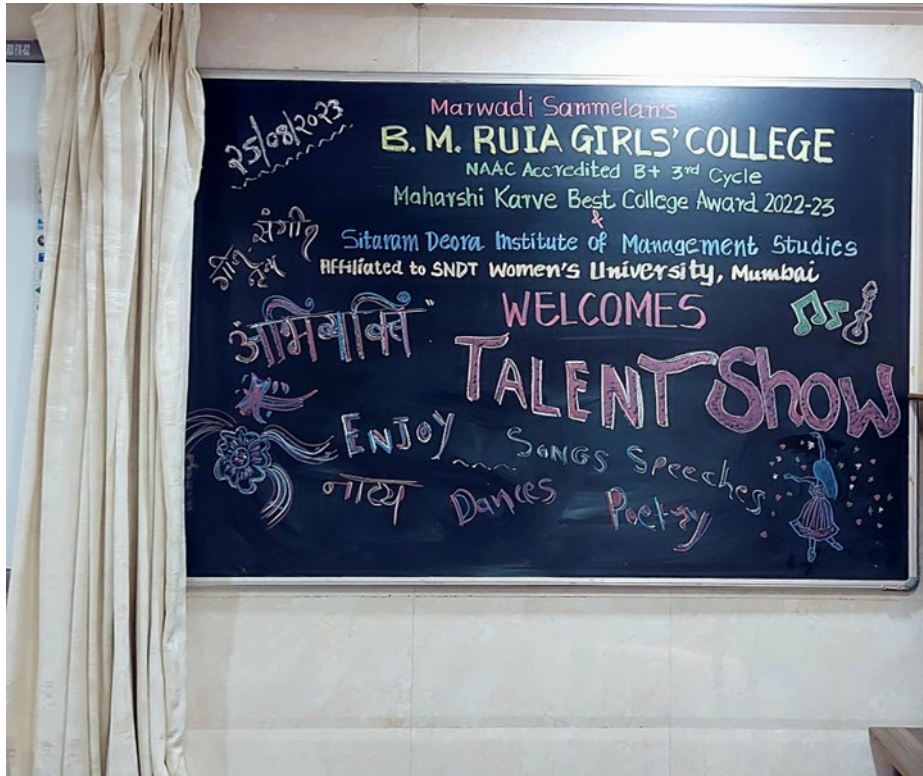 २५/०८/२०२३
Marwadi Sammelan's
B. M. RUIA GIRLS' COLLEGE
NAAC Accredited B+ 3rd Cycle
Maharshi Karve Best College Award 2022-23
&
Sitaram Deora Institute of Management Studies
Affiliated to SNDT Women's University, Mumbai
संगीत
गीत
नृत्य
WELCOMES
"अभिव्यक्ति"
TALENT Show
ENJOY.... SONGS Speeches
नाट्य Dances Poetry